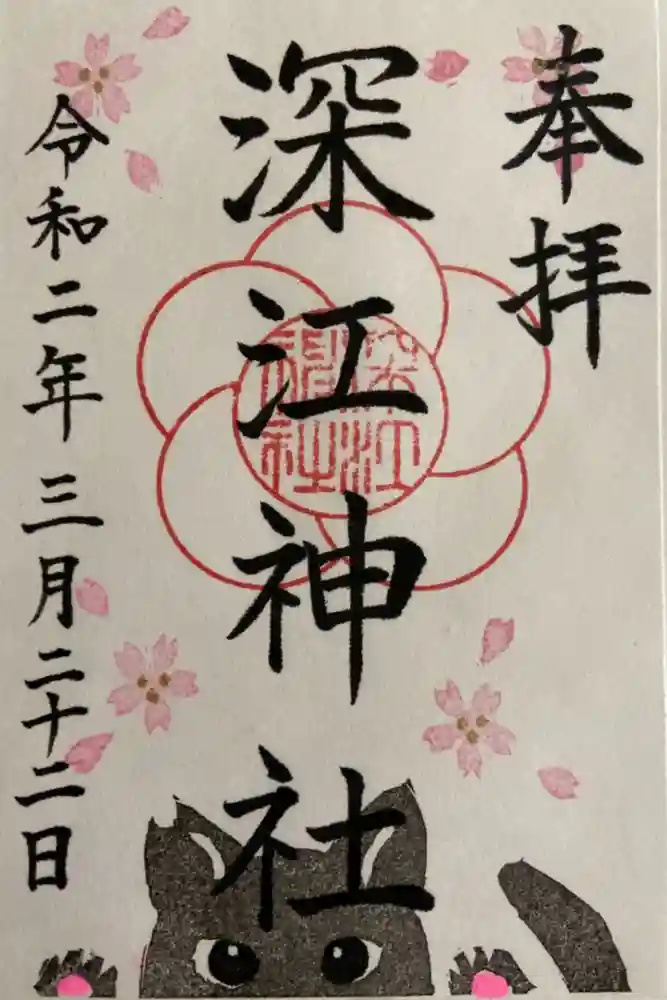 奉拝
深江神社
深江神社
令和二年三月二十二日